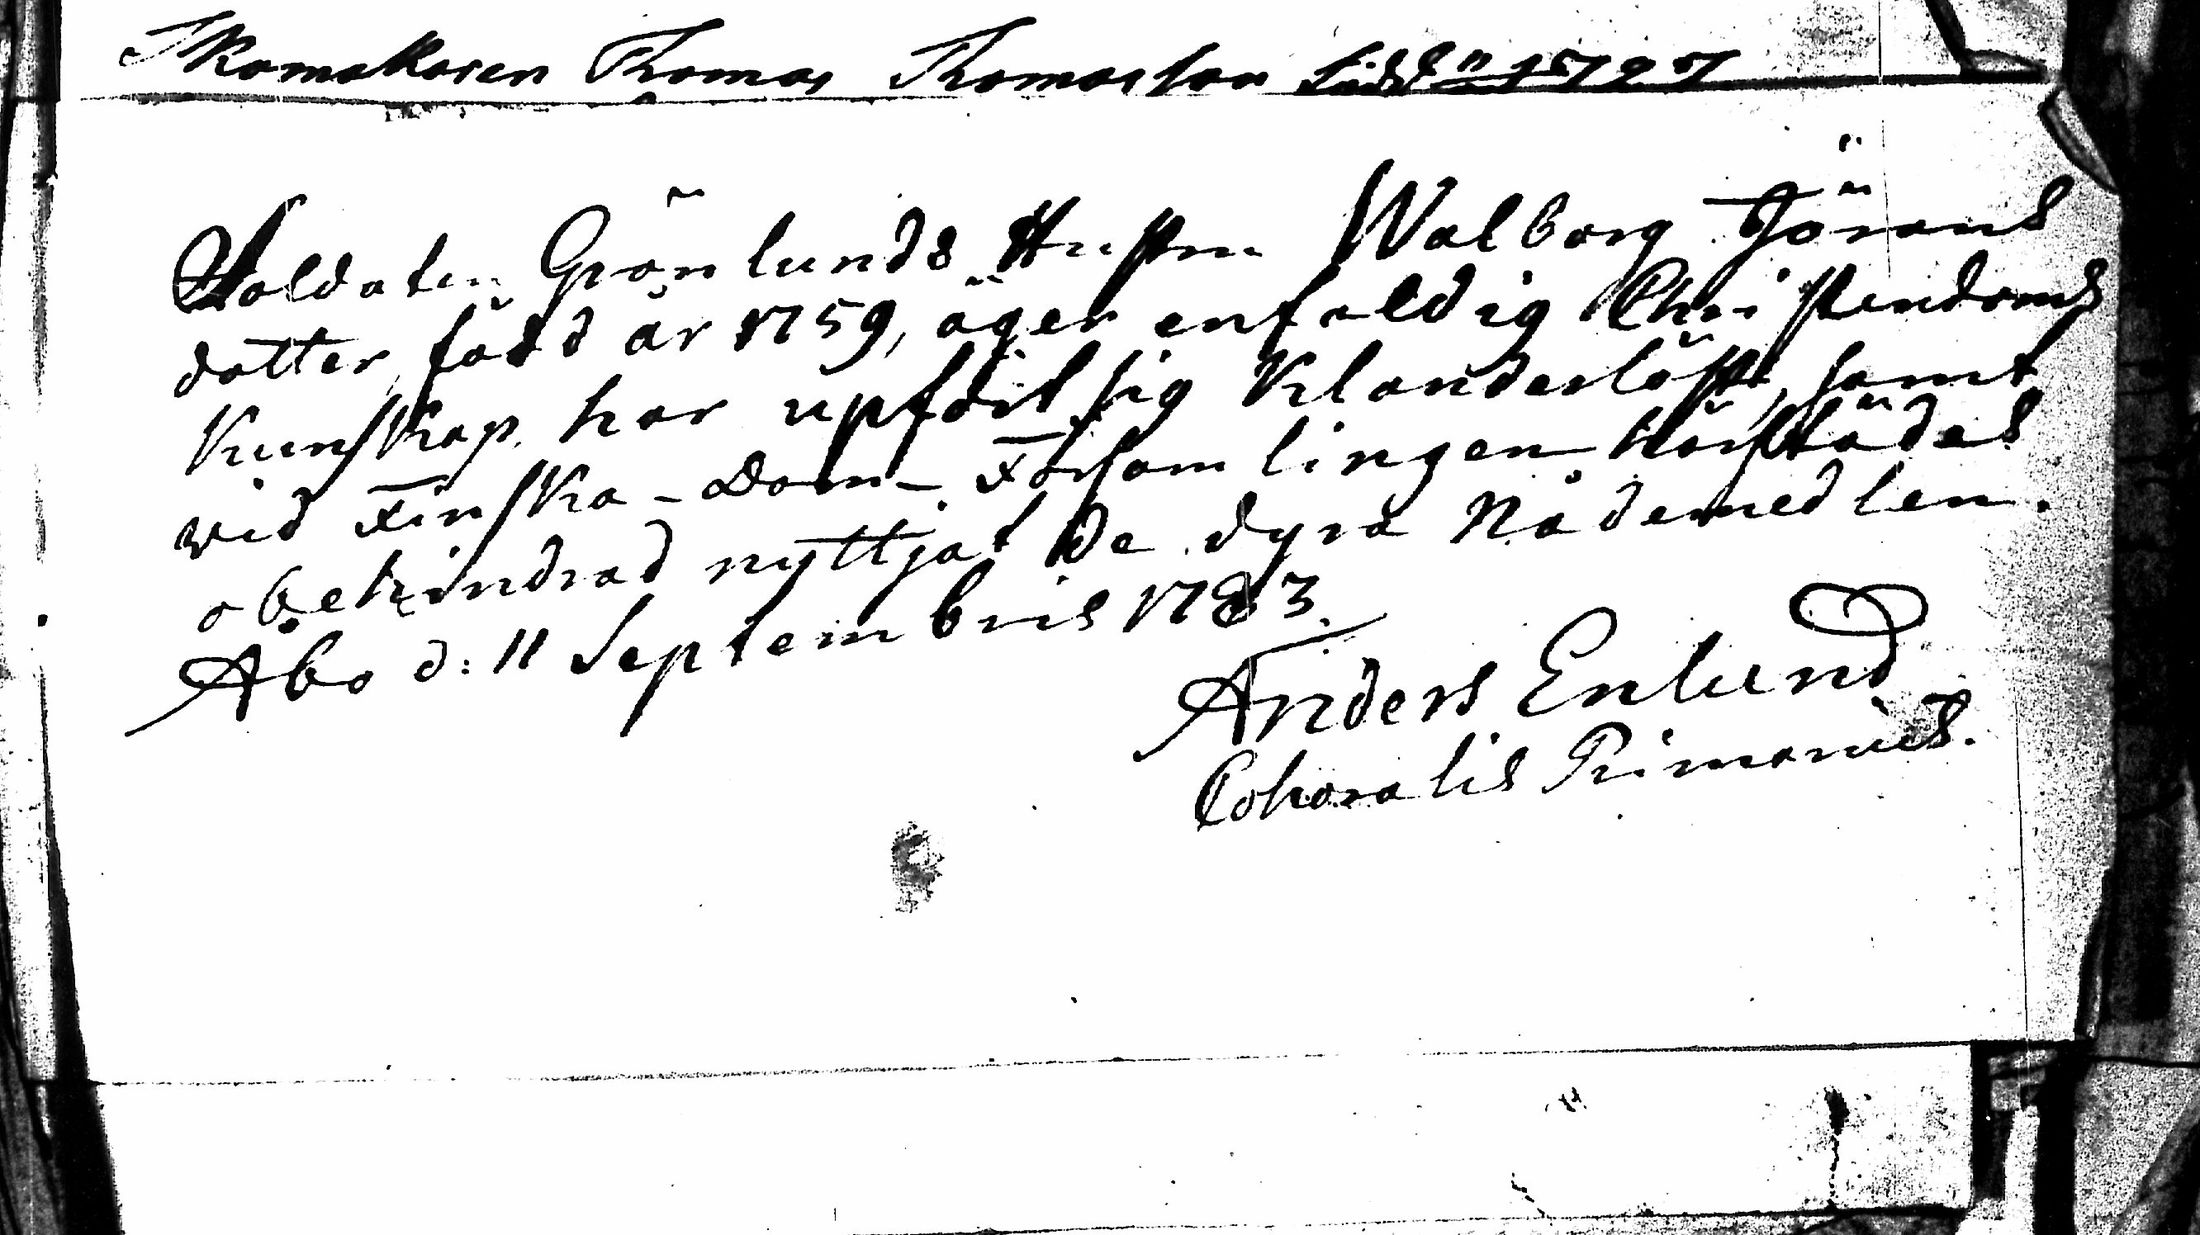 Skomakaren Thomas Thomasson född 1727
Soldaten Grönlunds Hustru Walborg Jörans
dotter född år 1759, äger enfaldig Christendoms
Kunskap, har upfört sig Klanderlöst, samt
vid Finska-Dom-Församlingen härstädes
obehindrad nyttjat de dyra Nådemedlen.
Åbo d: 11 Septembris 1783.
Anders Enlund
Cohoralis Primarius.